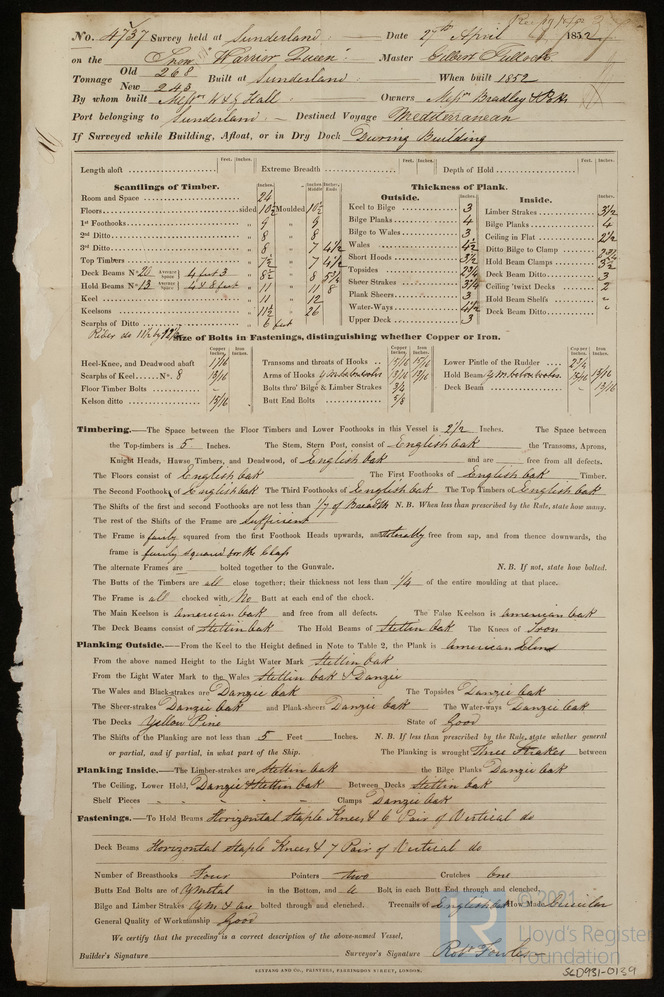 No. 4737 Survey held at Sunderland Date 27th April 1852
on the Snow "Warrior Queen" Master Gilbert Gullock
Tonnage Old 268 New 243 Built at Sunderland When built 1852
By whom built Messrs W & J Hall Owners Messrs Bradley & Potts
Port belonging to Sunderland Destined Voyage Mediterranean
If Surveyed while Building, Afloat, or in Dry Dock During Building
Feet. Inches. Feet. Inches. Feet. Inches.
Length aloft Extreme Breadth Depth of Hold
Scantlings of Timber.
Inches. Inches Middle Inches Ends
Room and Space 24
Floors sided 10½ Moulded 10½
1st Foothooks 9 " 9
2nd Ditto 8 " 8
3rd Ditto 8 " 7 4½
Top Timbers 7½ " 7 4½
Deck Beams No. 20 Average Space 4 feet 3 8½ 8 5¾
Hold Beams No. 13 Average Space 4 & 8 feet 11 11 8
Keel 11 " 12
Keelsons 11½ " 26
Scarphs of Ditto 6 feet
Rider do 11½ by 12½
Thickness of Plank.
Outside.
Inches.
Keel to Bilge 3
Bilge Planks 4
Bilge to Wales 3
Wales 4½
Short Hoods 3½
Topsides 2¾
Sheer Strakes 3¼
Plank Sheers 3
Water-Ways 4½
Upper Deck 3
Inside.
Inches.
Limber Strakes 3½
Bilge Planks 4
Ceiling in Flat 2½
Ditto Bilge to Clamp
Hold Beam Clamps 3½
Deck Beam Ditto 3
Ceiling 'twixt Decks 2
Hold Beam Shelfs "
Deck Beam Ditto "
Size of Bolts in Fastenings, distinguishing whether Copper or Iron.
Copper Inches Iron Inches. Copper Inches Iron Inches. Copper Inches Iron Inches.
Heel-Knee, and Deadwood abaft 1 1/16
Scarphs of Keel No. 8 13/16
Floor Timber Bolts -
Kelson ditto 15/16
Transoms and throats of Hooks 15/16 15/16
Arms of Hooks 13/16 13/16
Bolts thro' Bilge & Limber Strakes 3/4
Butt End Bolts 5/8
Lower Pintle of the Rudder 2¾
Hold Beam 13/16 13/16
Deck Beam - 13/16
Timbering.—The Space between the Floor Timbers and Lower Foothooks in this Vessel is 2½ Inches. The Space between
the Top-timbers is 5 Inches. The Stem, Stern Post, consist of English oak the Transoms, Aprons,
Knight Heads, Hawse Timbers, and Deadwood, of English oak and are free from all defects.
The Floors consist of English oak The First Foothooks of English oak Timber.
The Second Foothooks of English oak The Third Foothooks of English oak The Top Timbers of English oak
The Shifts of the first and second Foothooks are not less than 1/7 of Breadth N. B. When less than prescribed by the Rule, state how many.
The rest of the Shifts of the Frame are Sufficient
The Frame is fairly squared from the first Foothook Heads upwards, and tolerably free from sap, and from thence downwards, the
frame is fairly squared for the Class
The alternate Frames are bolted together to the Gunwale. N. B. If not, state how bolted.
The Butts of the Timbers are all close together; their thickness not less than 1/4 of the entire moulding at that place.
The Frame is all chocked with No Butt at each end of the chock.
The Main Keelson is American oak and free from all defects. The False Keelson is American oak
The Deck Beams consist of Stettin oak The Hold Beams of Stettin oak The Knees of Iron
Planking Outside.—From the Keel to the Height defined in Note to Table 2, the Plank is American Elm
From the above named Height to the Light Water Mark Stettin oak
From the Light Water Mark to the Wales Stettin oak & Danzic
The Wales and Black-strakes are Danzic oak The Topsides Danzic oak
The Sheer-strakes Danzic oak and Plank-sheers Danzic oak The Water-ways Danzic oak
The Decks Yellow Pine State of Good
The Shifts of the Planking are not less than 5 Feet Inches. N. B. If less than prescribed by the Rule, state whether general
or partial, and if partial, in what part of the Ship. The Planking is wrought Three Strakes between
Planking Inside.—The Limber-strakes are Stettin oak the Bilge Planks Danzic oak
The Ceiling, Lower Hold, Danzic & Stettin oak Between Decks Stettin oak
Shelf Pieces - - - - Clamps Danzic oak
Fastenings.—To Hold Beams Horizontal Staple Knees & 6 Pair of Vertical do
Deck Beams Horizontal Staple Knees & 7 Pair of Vertical do
Number of Breasthooks Four Pointers two Crutches One
Butts End Bolts are of Y metal in the Bottom, and a Bolt in each Butt End through and clenched.
Bilge and Limber Strakes Y M & are bolted through and clenched. Treenails of English oak How Made Circular
General Quality of Workmanship Good
We certify that the preceding is a correct description of the above-named Vessel,
Builder's Signature Surveyor's Signature Robt Fowles
SEYFANG AND CO., PRINTERS, FARRINGDON STREET, LONDON.
© 2021
Lloyd's Register
Foundation
SLD931-0139